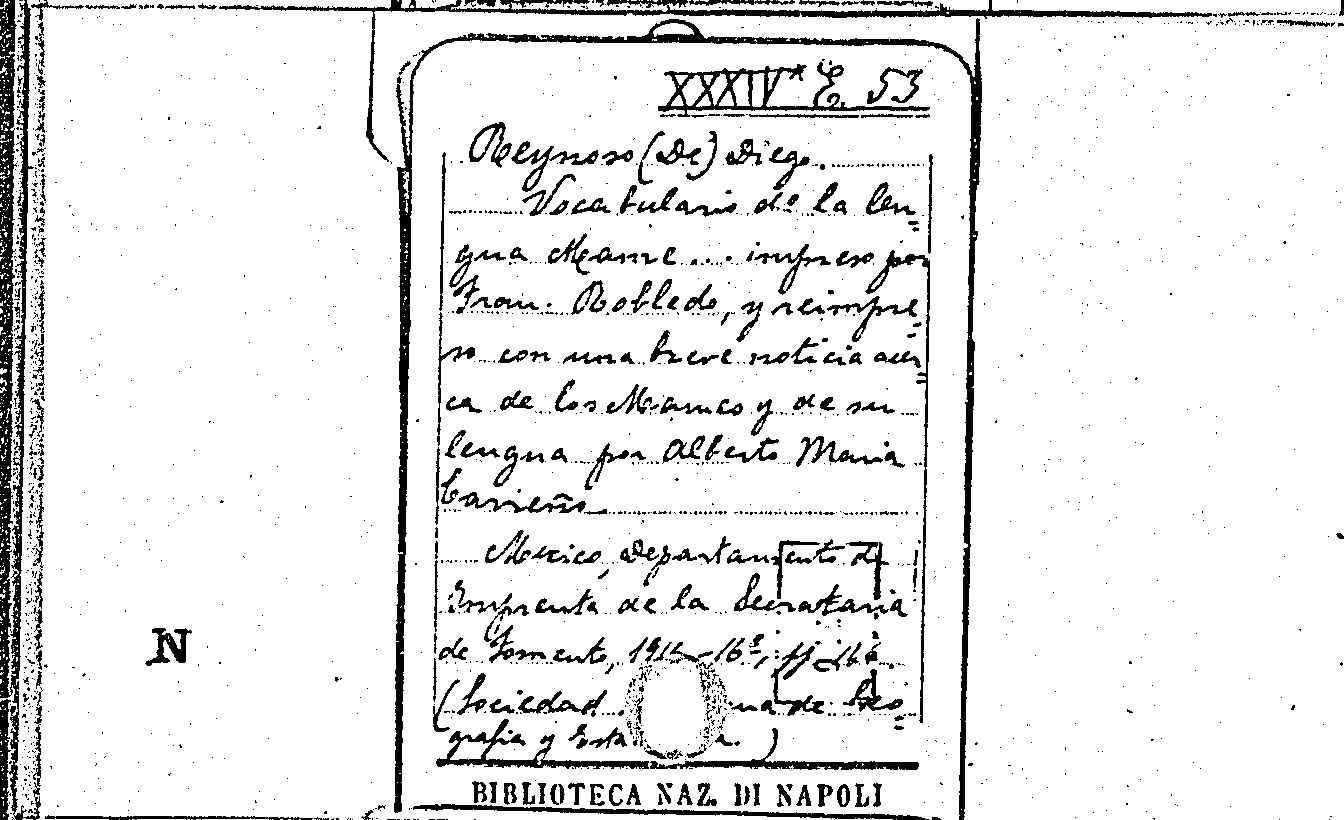 XXXIV* E. 53
Reynoso (De) Diego.
Vocabulario de la len=
gua Mame... impreso por
Fran. Robledo, y reimpre=
so con una breve noticia acer=
ca de los Mames y de su
lengua por Alberto Maria
Carreño.
Mexico, Departamento de
Imprenta de la Secretaria
de Fomento,
(Sociedad de Geo=
grafia y
N
BIBLIOTECA NAZ. DI NAPOLI